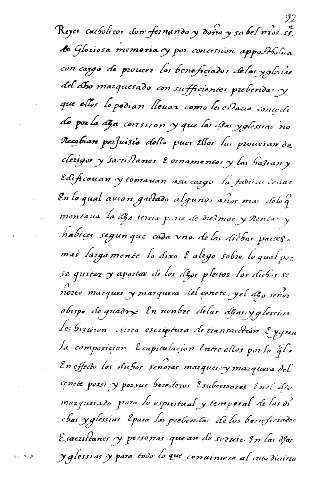 92
Reyes catholicos don fernando y doña ysabel nros ss.
de Gloriosa memoria y por concession appostholica
con cargo de proueer los beneficiados de las yglesias
del dho marquesado con sufficientes prebendas y
que ellos lo podian lleuar como les estaua concedi
do por la dha concesion y que las dhas yglesias no
Recebian perjuisio dello pues Ellos las proueian de
clerigos y sacristanes E ornamentos y las hazian y
Edificauan y tomauan a su cargo la fabrica dellas
En lo qual auian gastado algunos años mas de lo q
montaua la dha tercia parte de diezmos y Rentas y
habices segun que cada vno de las dichas partes
mas largamente lo dixo E alego sobre lo qual por
se quitar y apartar de los dhos pleitos los dichos se
ñores marques y marquesa del cenete y el dho señor
obispo de guadix En nonbre de las dhas yglesias
les hizieron cierta escriptura de transaction E yguala
la composicion E capitulacion Entre ellos por la ql
En effeto los dichos señores marques y marquesa del
cenete por si y por sus herederos E subcesores En el dho
marquesado para lo espiritual y temporal de las di
chas yglesias E para las prebendas de los beneficiados
E sacristanes y personas que an de seruir En las dhas
yglessias y para todo lo que conuiniere al culto diuino